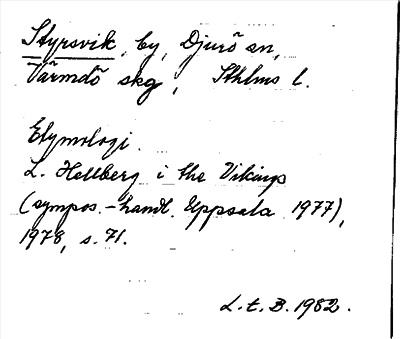 Styrsvik, by, Djurö sn,
Värmdö skg, Sthlms l.
Etymologi.
L. Hellberg i the Vikings
(sympos.-handl. Uppsala 1977),
1978, s. 71.
L.t.B. 1982.